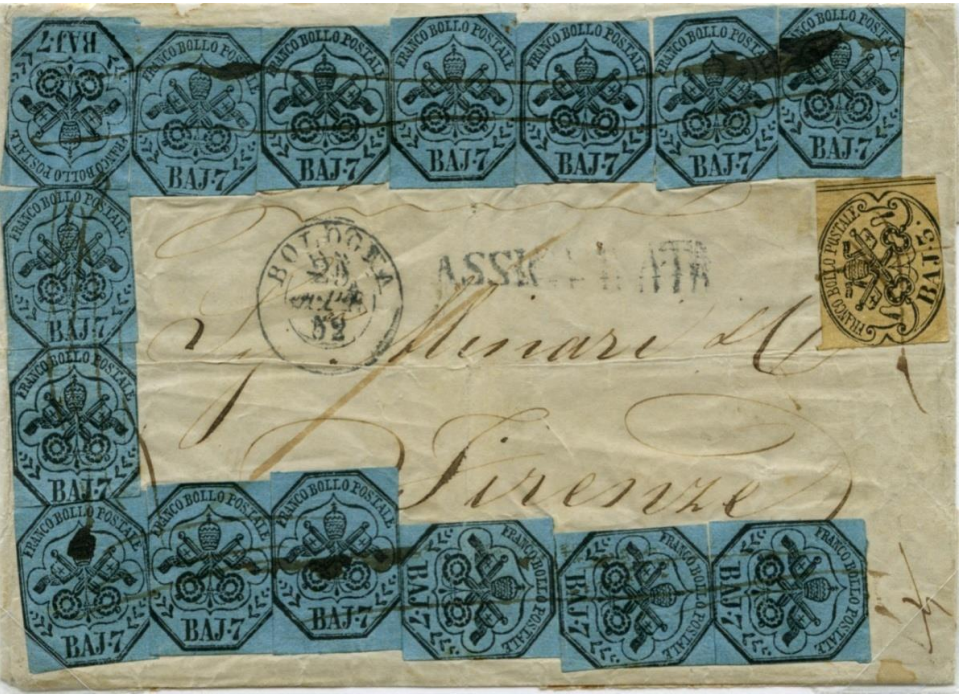 BAJ.7
FRANCO BOLLO POSTALE
FRANCO BOLLO POSTALE
BAJ.7
FRANCO BOLLO POSTALE
BAJ.7
FRANCO BOLLO POSTALE
BAJ.7
FRANCO BOLLO POSTALE
BAJ.7
FRANCO BOLLO POSTALE
BAJ.7
FRANCO BOLLO POSTALE
BAJ.7
FRANCO BOLLO POSTALE
BAJ.7
FRANCO BOLLO POSTALE
BAJ.5.
BOLOGNA
52
Minari
Firenze
FRANCO BOLLO POSTALE
BAJ.7
FRANCO BOLLO POSTALE
BAJ.7
FRANCO BOLLO POSTALE
BAJ.7
FRANCO BOLLO POSTALE
BAJ.7
FRANCO BOLLO POSTALE
BAJ.7
FRANCO BOLLO POSTALE
BAJ.7
FRANCO BOLLO POSTALE
BAJ.7